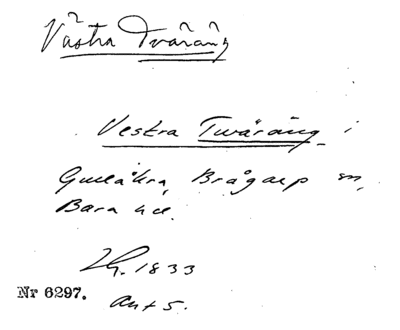 Västra Tväräng
Vestra Twäräng i
Gullåkra, Brågarp sn,
Bara hd.
Lh. 1833
akt 5.
Nr 6297.